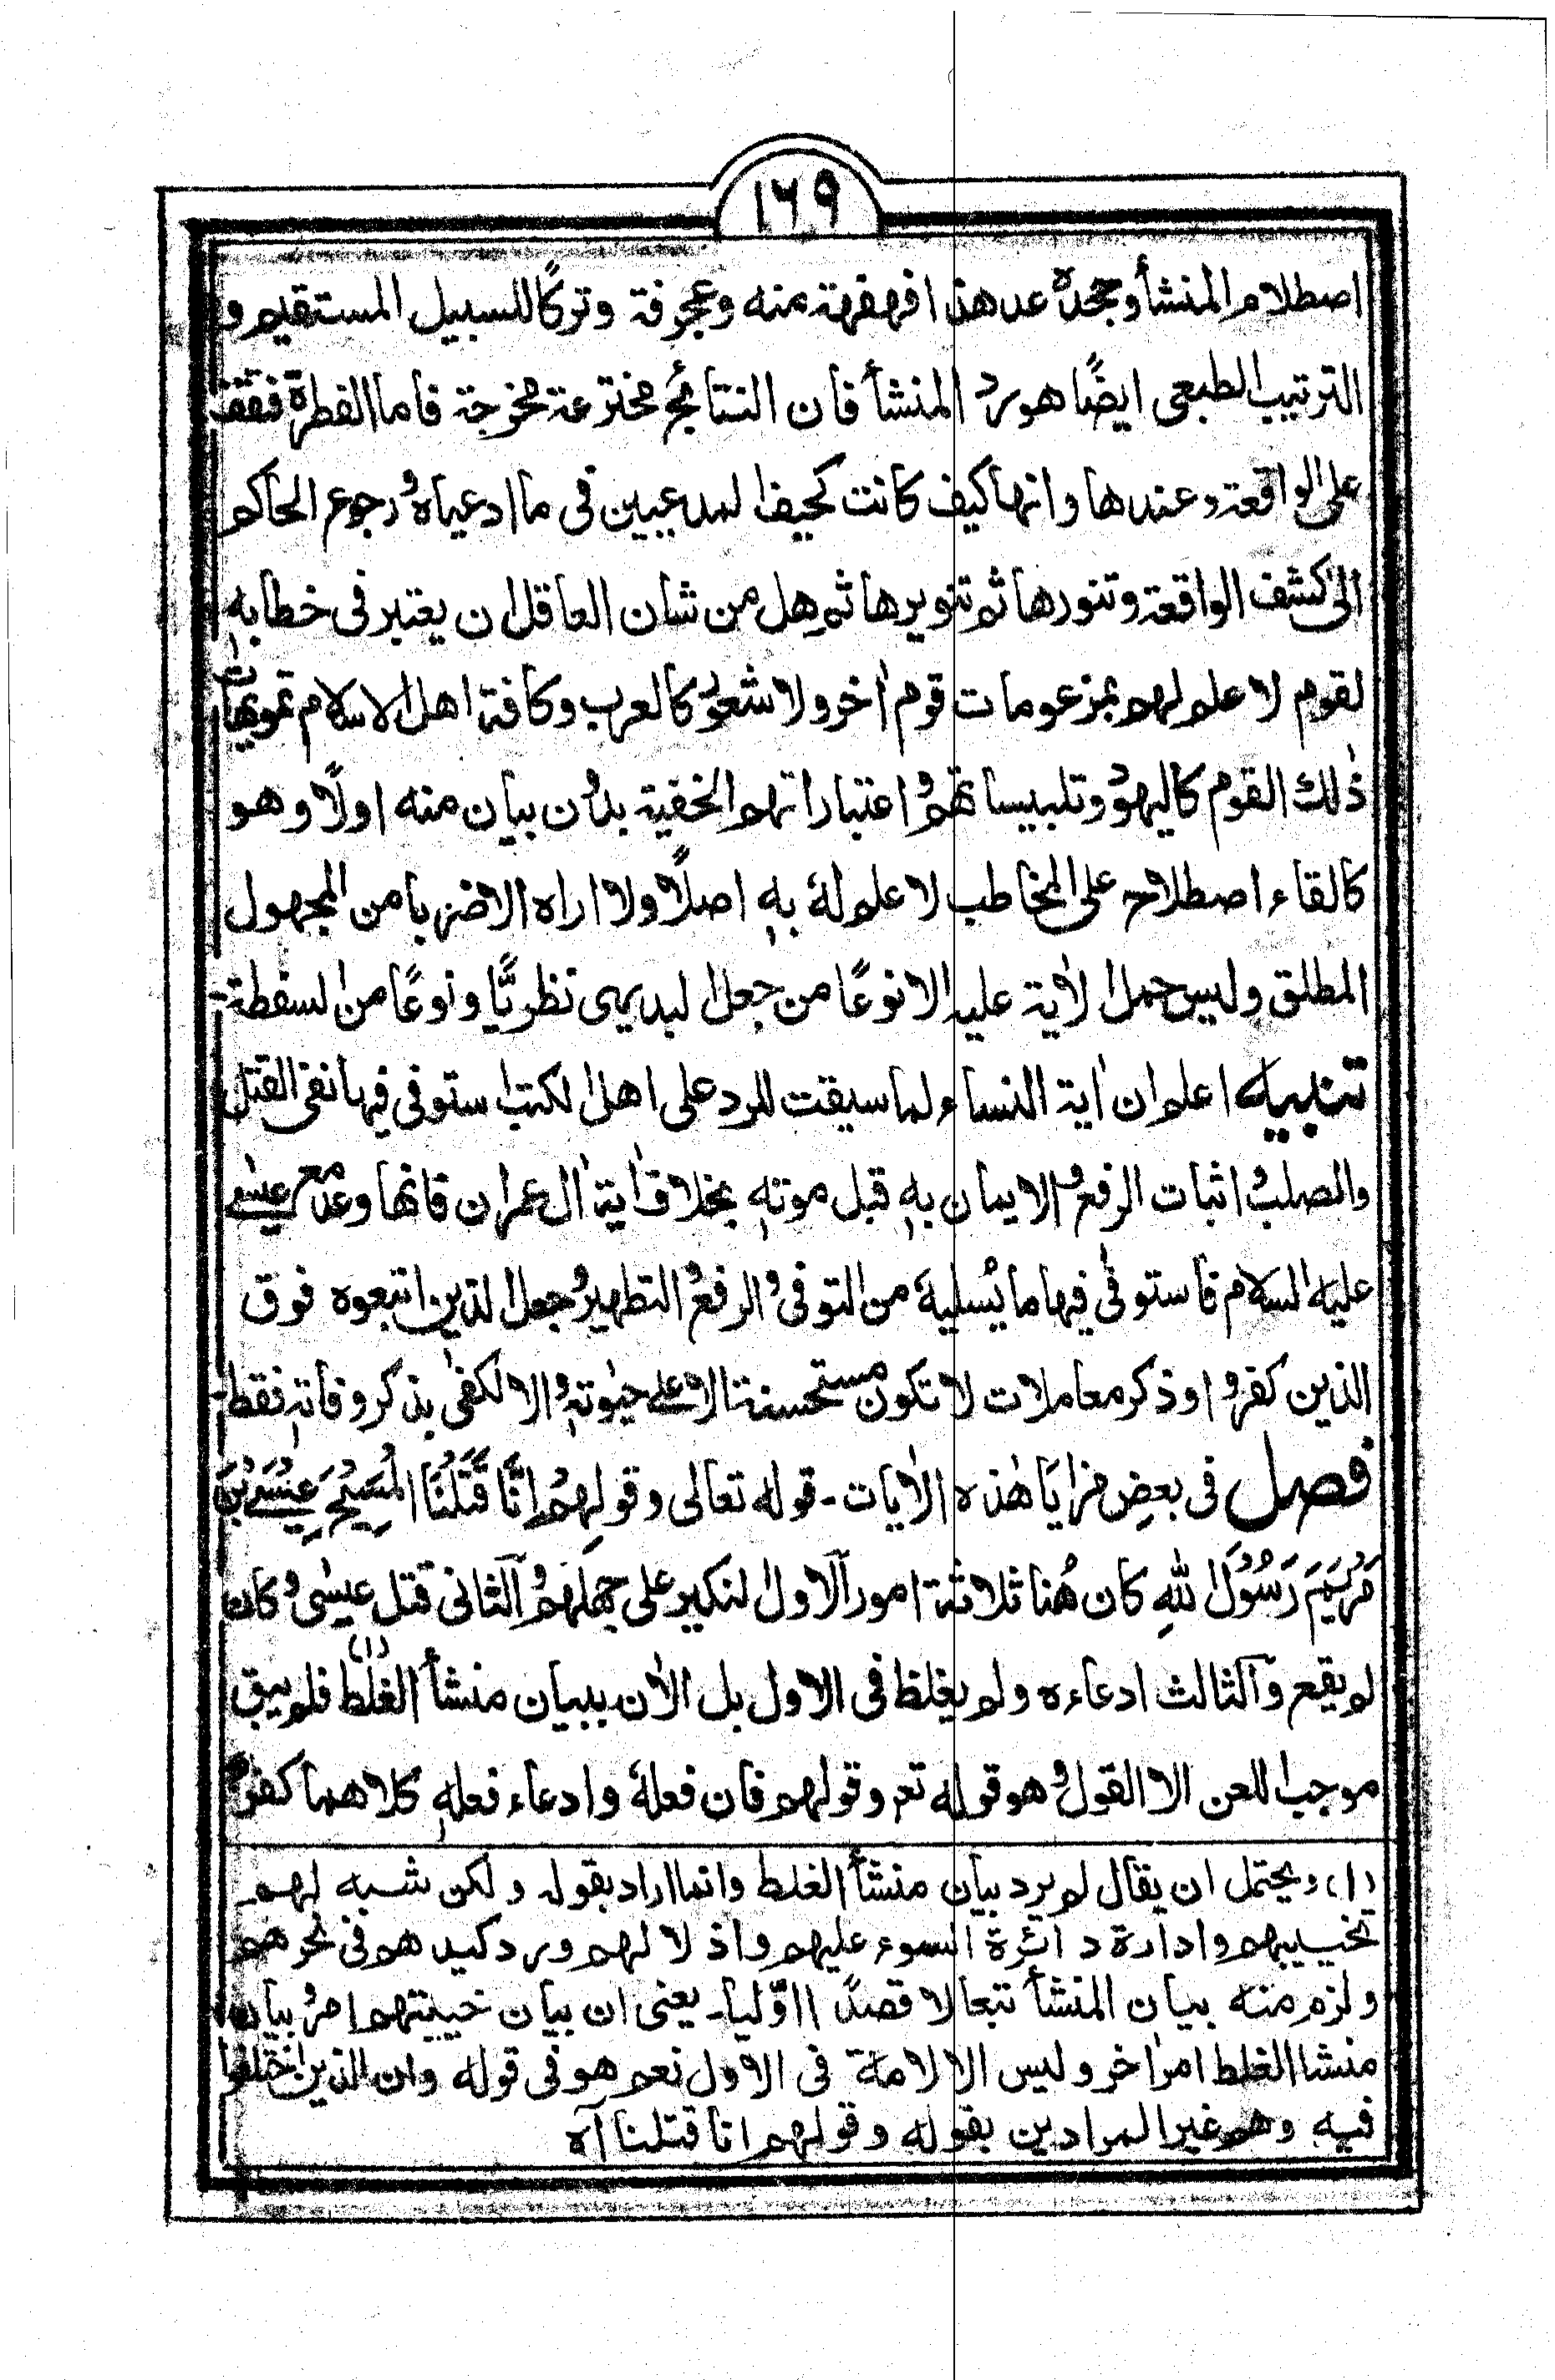 ١٦٩
اصطلام المنشأ وجحده عد هذا فهفهة منه وعجرفة وتركًا للسبيل المستقيم و
الترتيب الطبعى ايضًا هو رد المنشأ فان النتائج مخترعة مخرجة فاما الفطرة فتقف
على الواقعة وعندها وانها كيف كانت كحيفا لمدعيين فى ما ادعياه و رجوع الحاكم
الىٰ كشف الواقعة وتنورها ثم تنويرها ثم هل من شان العاقل ان يعتبر فى خطابهٖ
لقوم لا علم لهم بمزعومات قوم اٰخر ولا شعور كالعرب وكافة اهل الاسلام تمويهات
ذٰلك القوم كاليهود وتلبيساتهم و اعتباراتهم الخفية بدون بيان منه اولًا وهو
كالقاء اصطلاح على المخاطب لا علم لهٗ بهٖ اصلًا ولا اراه الا ضربا من المجهول
المطلق وليس حمل الاٰية عليه الا نوعًا من جعل البديهى نظريًّا ونوعًا من السفطة
تنبيه اعلم ان اٰية النساء لما سيقت للرد على اهل الكتٰب استوفى فيها نفى القتل
والصلب و اثبات الرفع و الايمان بهٖ قبل موتهٖ بخلاف اٰية اٰل عمران فانها وعد مع عيسٰى
عليه السلام فاستوفٰى فيها ما يُسليهٗ من التوفى و الرفع و التطهير و جعل الذين اتبعوه فوق
الذين كفروا وذكر معاملات لا تكون مستحسنة الا علٰى حيٰوتهٖ و الا لكفٰى بذكر وفاتهٖ فقط
فصل فى بعض مزايا هٰذه الاٰيات ـ قوله تعالى وقولهِمْ اِنَّا قَتَلْنَا الْمَسِيْحَ عِيْسَى بْنَ
مَرْيَمَ رَسُوْلَ اللهِ كان هُنا ثلاثة امور اَلاول النكير على جهلهم و اَلثانى قتل عيسٰى و كان
لم يقع و اَلثالث ادعاءه ولم يغلظ فى الاول بل الاٰن ببيان منشأ الغلط (١) فلم يبق
موجب اللعن الا القول و هو قوله تعم وقولهم فان فعلهٗ وادعاء فعلهٖ كلاهما كفر
(١) ويحتمل ان يقال لم يرد بيان منشأ الغلط وانما اراد بقوله ولكن شبه لهم
تخييبهم وادارة دائرة السوء عليهم واذلا لهم ورد كيدهم فى نحرهم
ولزم منه بيان المنشأ تبعا لا قصدًا اوّليا ـ يعنى ان بيان خيبتهم امر و بيان
منشا الغلط امراٰخر وليس الا لامة فى الاول نعم هو فى قوله وان الذين اختلفوا
فيه وهم غير المرادين بقوله وقولهم انا قتلنا آه